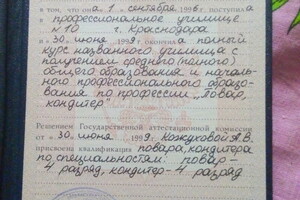 в том, что она 1 сентября 1996г поступила
в профессиональное училище
№10 г. Краснодара
и 30 июня 1999г окончила полный
курс названного училища с
получением среднего (полного)
общего образования и началь-
ного профессионального образо-
вания по профессии „Повар,
кондитер"
Решением Государственной аттестационной комиссии
от „30" июня 1999г. Кожуховой А.В.
присвоена квалификация повара, кондитера
по специальностям: повар-
4 разряд, кондитер-4 разряд